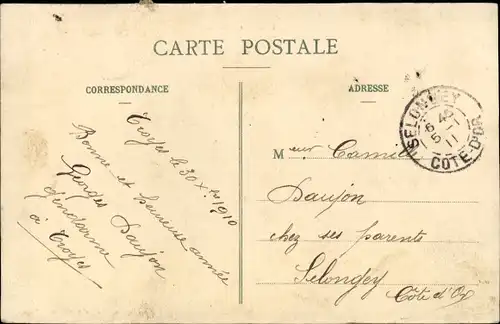 CARTE POSTALE
CORRESPONDANCE
Troyes le 30 Xbre 1910
Bonne et heureuse année
Georges Daujon
gendarme
à Troyes
ADRESSE
Meur Camille
Daujon
chez ses parents
Selongey
Côte d'Or
SELONGEY
6 45
5 - 1
11
COTE-D'OR